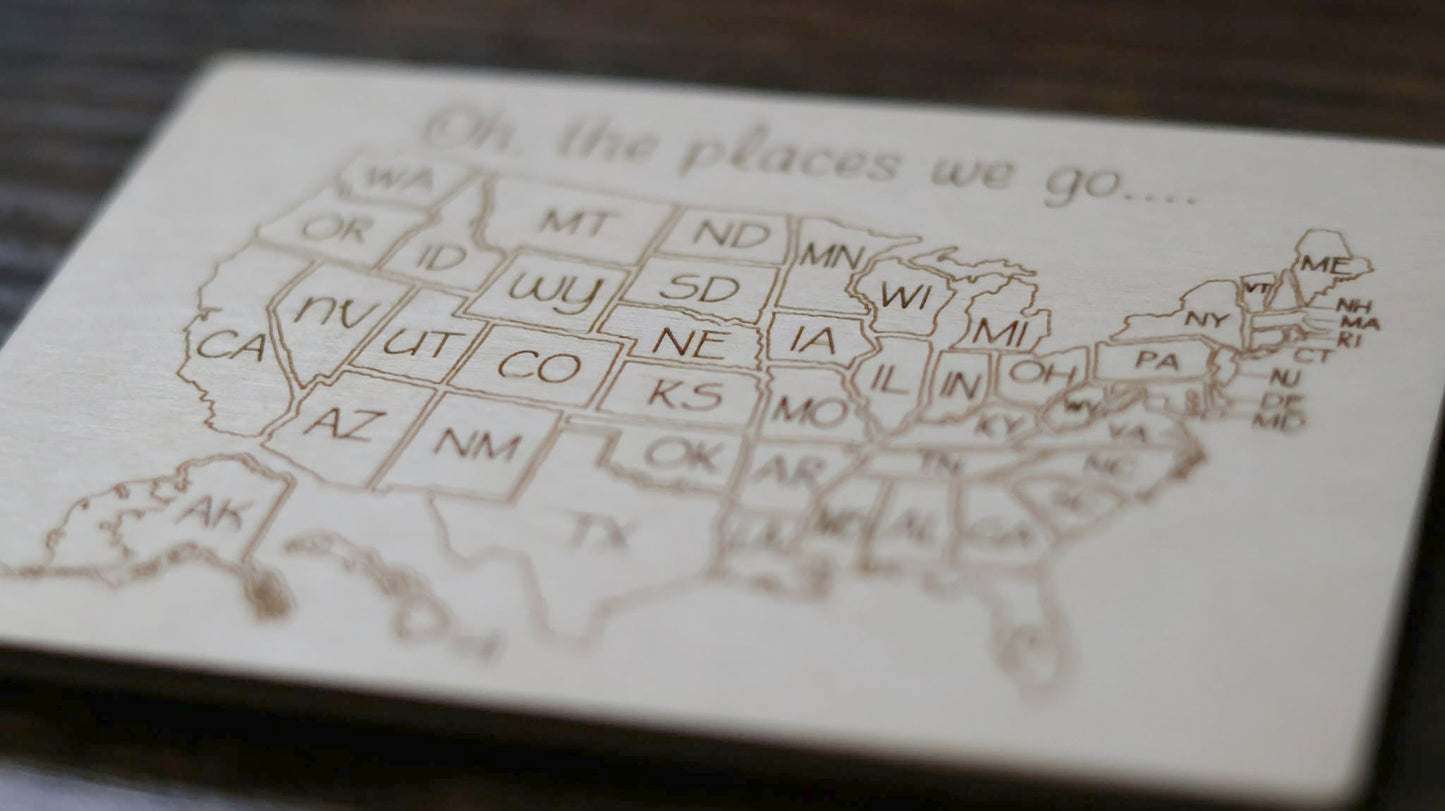 Oh, the places we go....
WA
MT
ND
MN
OR
ID
WY
SD
WI
MI
ME
VT
NH
NY
MA
RI
CT
CA
NV
UT
CO
NE
IA
IL
IN
OH
PA
NJ
DE
MD
AZ
NM
KS
MO
KY
WV
VA
OK
AR
TN
NC
SC
AK
TX
LA
MS
AL
GA
HI